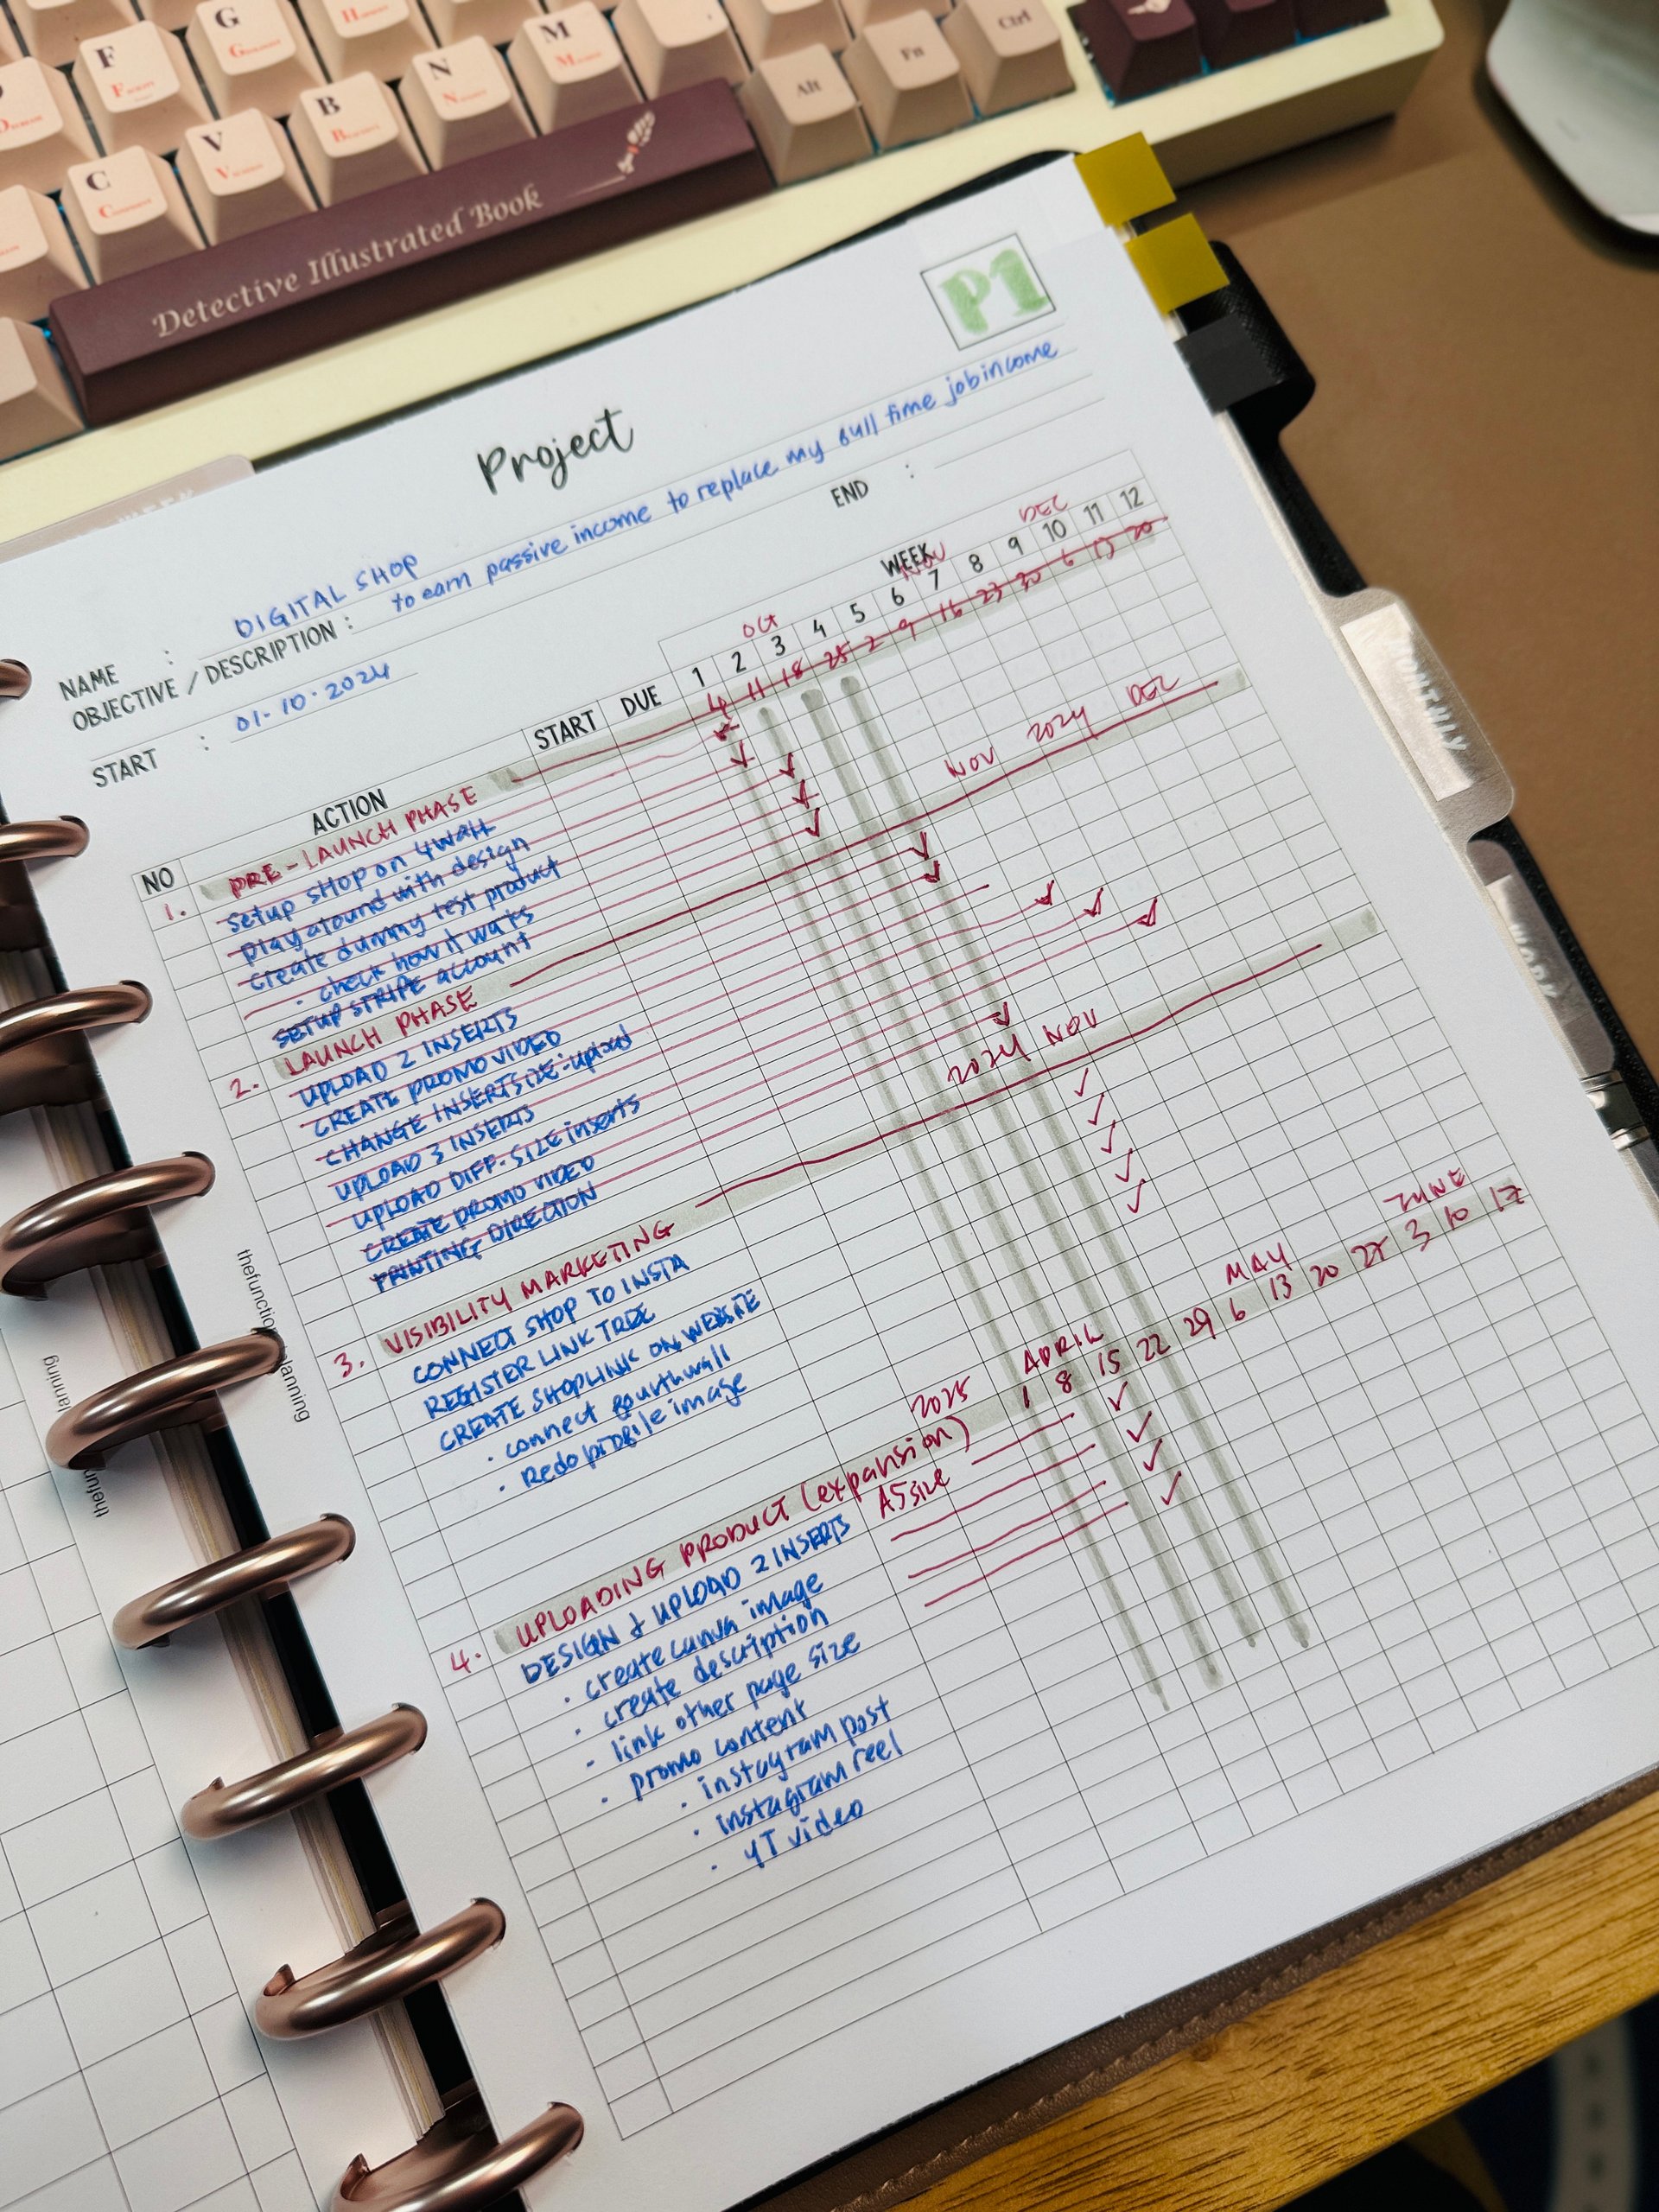 F
G
H
M
N
B
V
C
Alt
Fn
Ctrl
Detective Illustrated Book
P1
Project
NAME : DIGITAL SHOP
OBJECTIVE / DESCRIPTION : to earn passive income to replace my full time job income
START : 01·10·2024
END :
WEEK
OCT NOV DEC
NO ACTION START DUE 1 2 3 4 5 6 7 8 9 10 11 12
4 11 18 25 2 9 16 23 30 6 13 20
1. PRE-LAUNCH PHASE
setup SHOP on 4wall
play around with design
create dummy test product
· check how it works
SETUP STRIPE account
2. LAUNCH PHASE NOV 2024 DEC
UPLOAD 2 INSERTS
CREATE PROMO VIDEO
CHANGE INSERT SIZE - upload
UPLOAD 3 INSERTS
UPLOAD DIFF. SIZE inserts
CREATE PROMO VIDEO
PRINTING DIRECTION
3. VISIBILITY MARKETING 2024 NOV
CONNECT SHOP TO INSTA
REGISTER LINK TREE
CREATE SHOPLINK ON WEBSITE
· connect fourthwall
· Redo profile image
2025 APRIL MAY JUNE
4. UPLOADING PRODUCT (expansion) 1 8 15 22 29 6 13 20 27 3 10 17
DESIGN & UPLOAD 2 INSERTS A5 size
· create canva image
· create description
· link other page size
· promo content
· instagram post
· instagram reel
· YT video
MONTHLY